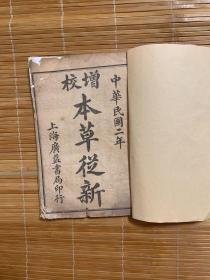 中華民國二年
增校
本草從新
上海廣益書局印行